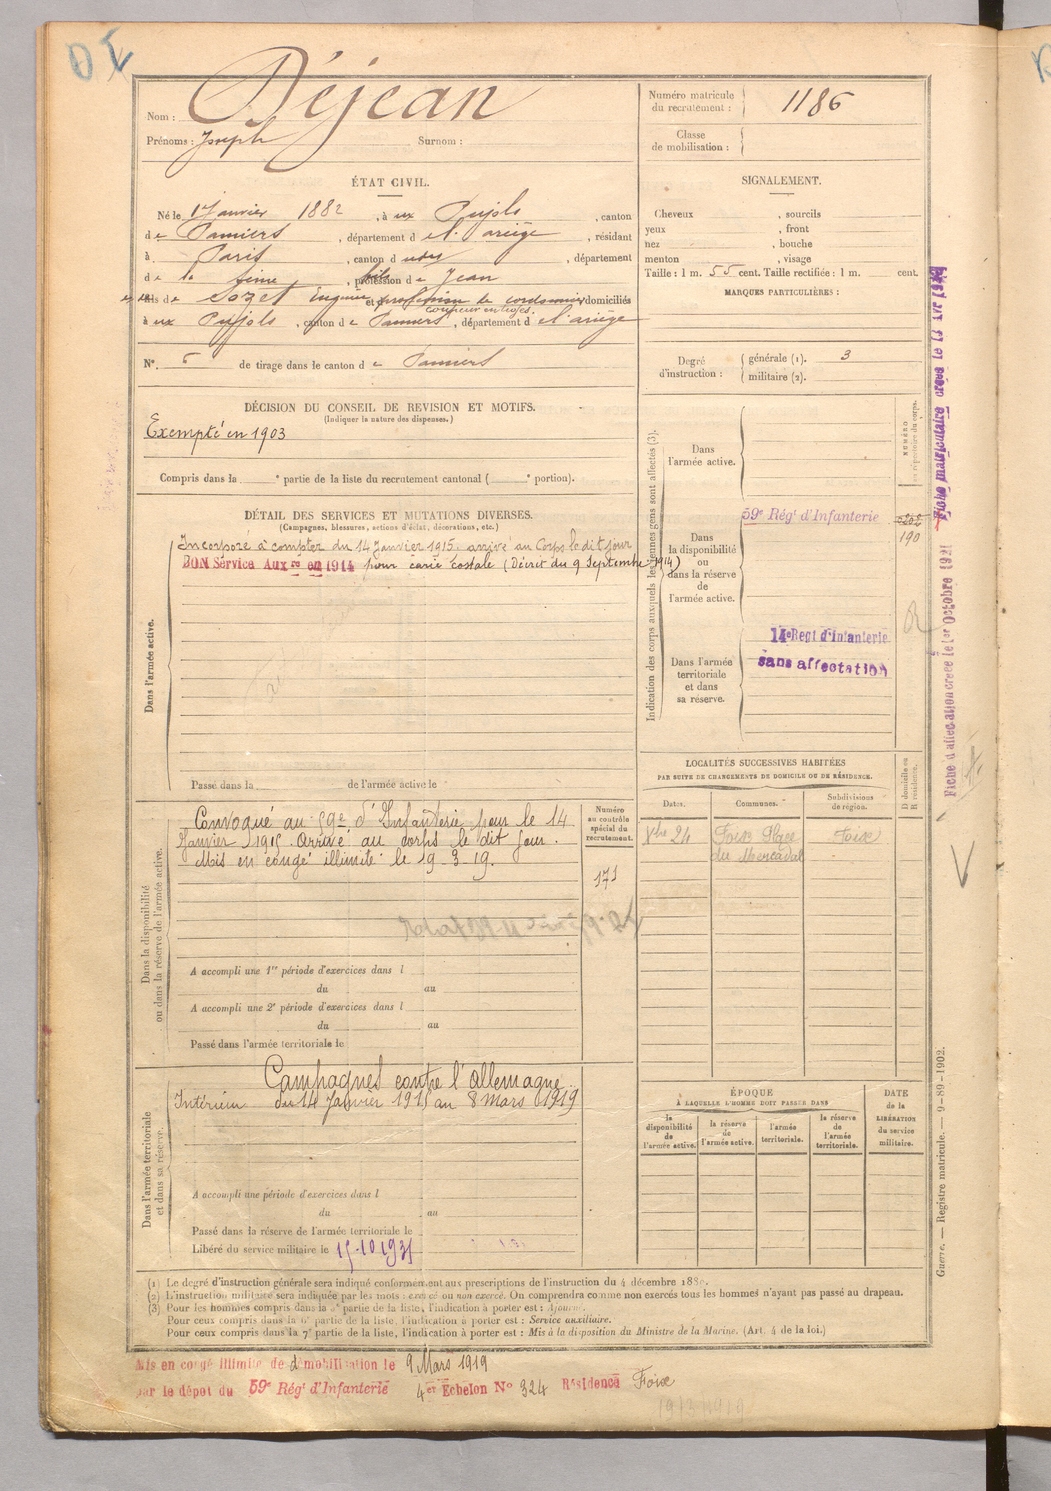 Nom : Déjean
Prénoms : Joseph Surnom :
ÉTAT CIVIL.
Né le 17 Janvier 1882, à ux Pujols, canton
de Pamiers, département d el' ariège, résidant
à Paris, canton d udes, département
de la Seine, profession de fils Jean
et de Sozet Eugénie et profession de cordonnier domiciliés
coupeur en tiges.
à ux Pujols, canton de Pamiers, département d el' ariège
N° 6 de tirage dans le canton de Pamiers
DÉCISION DU CONSEIL DE REVISION ET MOTIFS.
(Indiquer la nature des dispenses.)
Exempté en 1903
Compris dans la e partie de la liste du recrutement cantonal ( e portion).
DÉTAIL DES SERVICES ET MUTATIONS DIVERSES.
(Campagnes, blessures, actions d'éclat, décorations, etc.)
Dans l'armée active.
Incorporé à compter du 14 Janvier 1915. arrivé au Corps le dit jour
BON Service Auxre en 1914 pour carie costale (Décret du 9 Septembre 1914)
Passé dans la de l'armée active le
Dans la disponibilité
ou dans la réserve de l'armée active.
Convoqué au 59e d'Infanterie pour le 14
Janvier 1915 Arrivé au corps le dit jour.
Mis en congé illimité le 19-3-19.
Numéro
au contrôle
spécial du
recrutement.
171
A accompli une 1re période d'exercices dans l
du au
A accompli une 2e période d'exercices dans l
du au
Passé dans l'armée territoriale le
Dans l'armée territoriale
et dans sa réserve.
Campagnes contre l'allemagne
Intérieur du 14 Janvier 1915 au 8 mars 1919
A accompli une période d'exercices dans l
du au
Passé dans la réserve de l'armée territoriale le
Libéré du service militaire le 15-10-1931
Numéro matricule
du recrutement : 1186
Classe
de mobilisation :
SIGNALEMENT.
Cheveux , sourcils
yeux , front
nez , bouche
menton , visage
Taille : 1 m. 55 cent. Taille rectifiée : 1 m. cent.
MARQUES PARTICULIÈRES :
Degré
d'instruction :
générale (1). 3
militaire (2).
Indication des corps auxquels les jeunes gens sont affectés (3).
NUMÉRO
au répertoire du corps.
Dans
l'armée active.
59e Régt d'Infanterie
190
Dans
la disponibilité
ou
dans la réserve
de
l'armée active.
14e Regt d'Infanterie
sans affectation
Dans l'armée
territoriale
et dans
sa réserve.
LOCALITÉS SUCCESSIVES HABITÉES
PAR SUITE DE CHANGEMENTS DE DOMICILE OU DE RÉSIDENCE.
Dates.
Communes.
Subdivisions
de région.
D domicile ou
R résidence.
Xbre 24 Foix Place Foix
du Mercadal
ÉPOQUE
À LAQUELLE L'HOMME DOIT PASSER DANS
la
disponibilité
de
l'armée active.
la réserve
de
l'armée active.
l'armée
territoriale.
la réserve
de
l'armée
territoriale.
DATE
de la
LIBÉRATION
du service
militaire.
Fiche matriculaire créée le
Fiche d'affectation créée le 1er Octobre 1921
Guerre. — Registre matricule. — 9-89-1902.
(1) Le degré d'instruction générale sera indiqué conformément aux prescriptions de l'instruction du 4 décembre 1889.
(2) L'instruction militaire sera indiquée par les mots : exercé ou non exercé. On comprendra comme non exercés tous les hommes n'ayant pas passé au drapeau.
(3) Pour les hommes compris dans la 5e partie de la liste, l'indication à porter est : Ajourné.
Pour ceux compris dans la 6e partie de la liste, l'indication à porter est : Service auxiliaire.
Pour ceux compris dans la 7e partie de la liste, l'indication à porter est : Mis à la disposition du Ministre de la Marine. (Art. 4 de la loi.)
Mis en congé illimité de démobilisation le 9 Mars 1919
par le dépôt du 59e Régt d'Infanterie 4er Echelon No 324 Résidence Foix